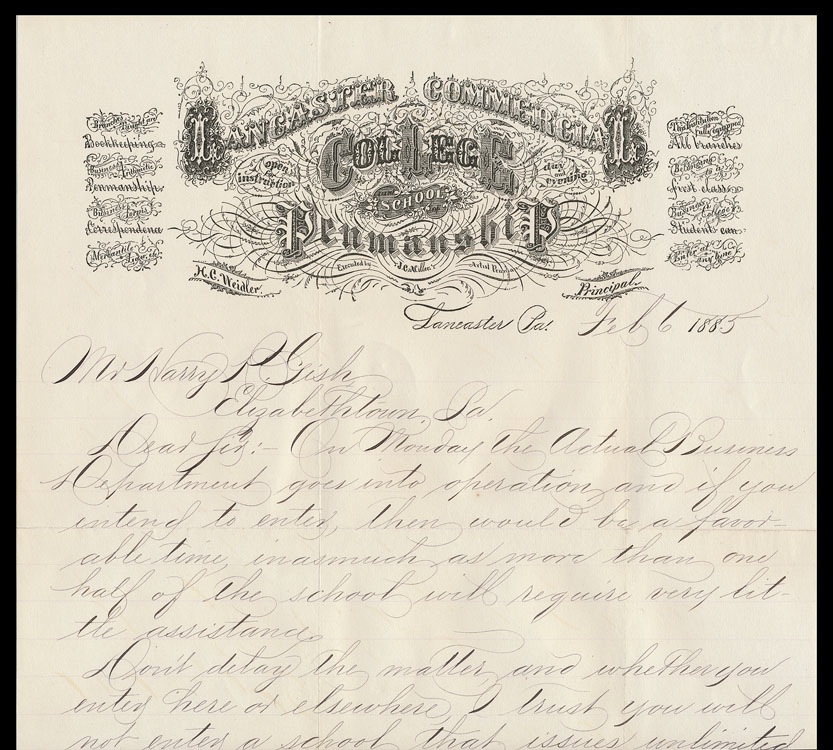 LANCASTER COMMERCIAL
COLLEGE
open for instruction
day and evening
SCHOOL
OF
Penmanship
Branches
Bookkeeping
Business Arithmetic
Penmanship
Business Forms
Correspondence
Mercantile
This Institution is fully equipped
All branches
Belonging to a
first class
Business College
Students can
Enter at any time
Executed by J.C. Miller's Artist Penman
H.C. Weidler.
Principal.
Lancaster Pa. Feb 6 1885
Mr Harry R. Gish
Elizabethtown, Pa.
Dear Sir:- On Monday the Actual Business
Department goes into operation and if you
intend to enter, then would be a favor-
able time, inasmuch as more than one
half of the school will require very lit-
tle assistance.
Don't delay the matter and whether you
enter here or elsewhere, I trust you will
not enter a school that issues unlimited